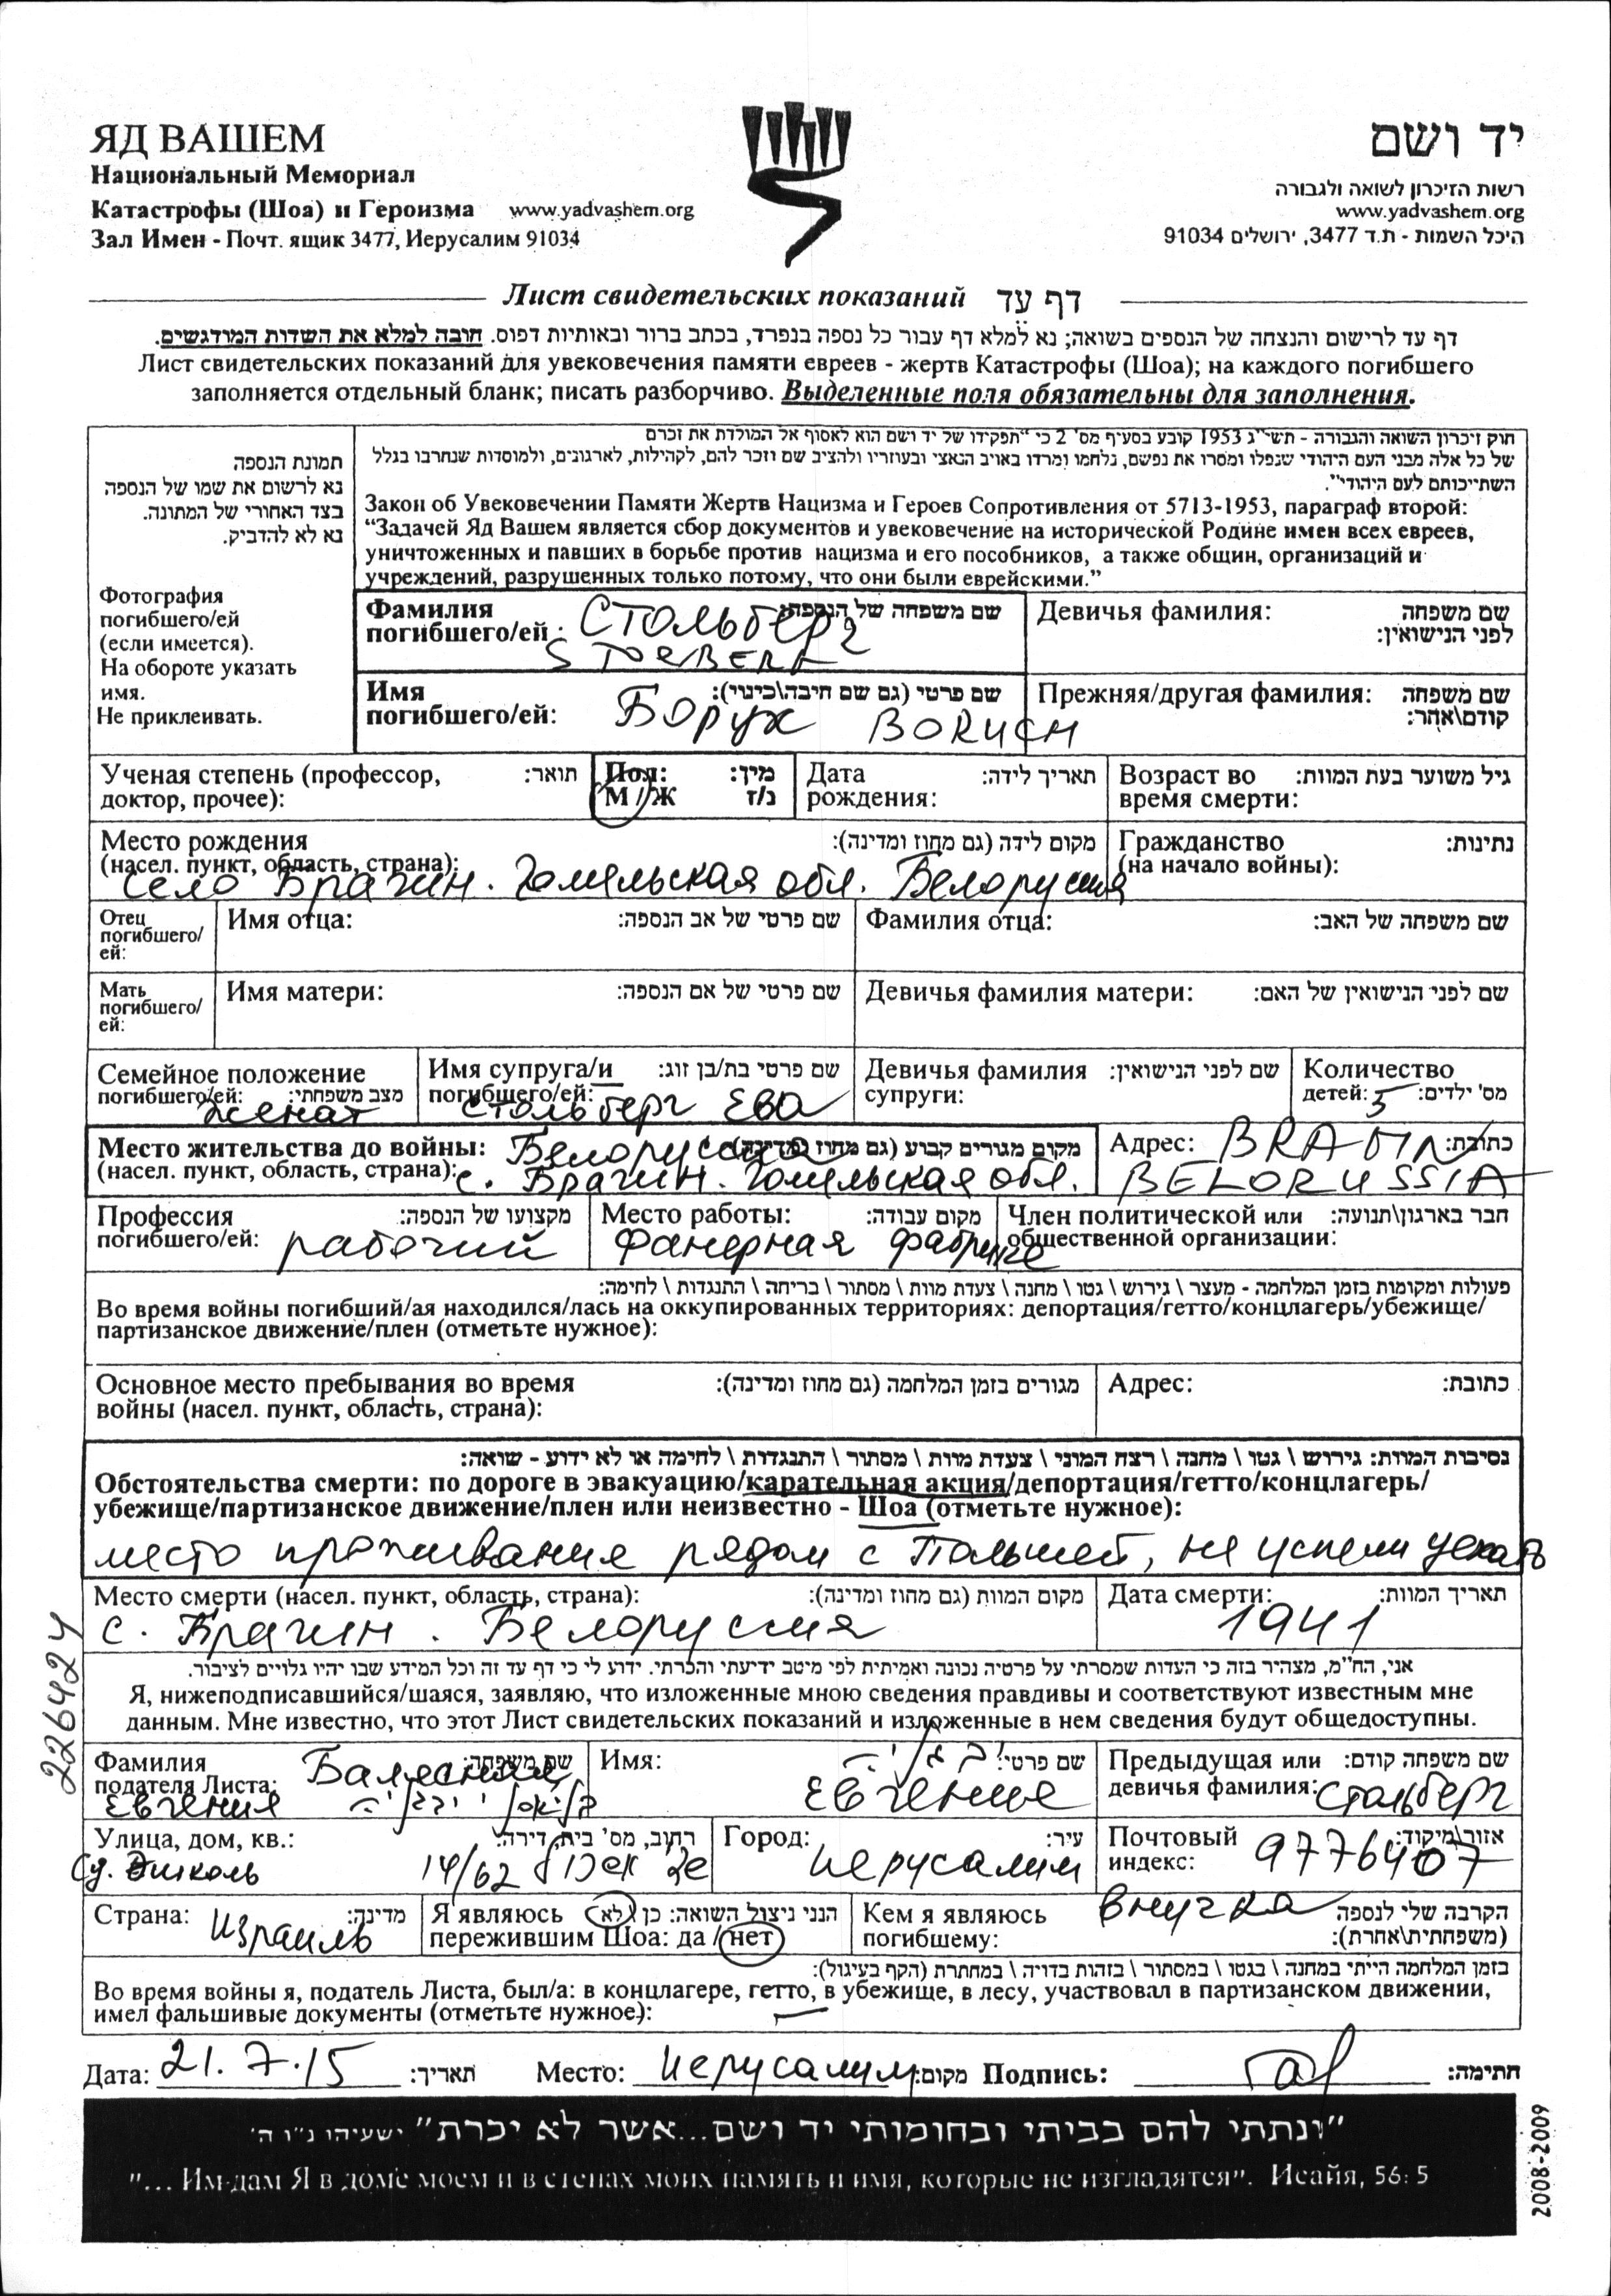 ЯД ВАШЕМ
Национальный Мемориал
Катастрофы (Шоа) и Героизма www.yadvashem.org
Зал Имен - Почт. ящик 3477, Иерусалим 91034
יד ושם
רשות הזיכרון לשואה ולגבורה
www.yadvashem.org
היכל השמות - ת.ד 3477, ירושלים 91034
Лист свидетельских показаний דף עד
דף עד לרישום והנצחה של הנספים בשואה; נא למלא דף עבור כל נספה בנפרד, בכתב ברור ובאותיות דפוס. חובה למלא את השדות המודגשים.
Лист свидетельских показаний для увековечения памяти евреев - жертв Катастрофы (Шоа); на каждого погибшего
заполняется отдельный бланк; писать разборчиво. Выделенные поля обязательны для заполнения.
תמונת הנספה
נא לרשום את שמו של הנספה
בצד האחורי של המתונה.
נא לא להדביק.
Фотография
погибшего/ей
(если имеется).
На обороте указать
имя.
Не приклеивать.
חוק זיכרון השואה והגבורה - תשי"ג 1953 קובע בסעיף מס' 2 כי "תפקידו של יד ושם הוא לאסוף אל המולדת את זכרם
של כל אלה מבני העם היהודי שנפלו ומסרו את נפשם, נלחמו ומרדו באויב הנאצי ובעוזריו ולהציב שם וזכר להם, לקהילות, לארגונים, ולמוסדות שנחרבו בגלל
השתייכותם לעם היהודי".
Закон об Увековечении Памяти Жертв Нацизма и Героев Сопротивления от 5713-1953, параграф второй:
“Задачей Яд Вашем является сбор документов и увековечение на исторической Родине имен всех евреев,
уничтоженных и павших в борьбе против нацизма и его пособников, а также общин, организаций и
учреждений, разрушенных только потому, что они были еврейскими.”
Фамилия שם משפחה של הנספה:
погибшего/ей: Стольберг
Девичья фамилия: שם משפחה
לפני הנישואין:
Имя שם פרטי (גם שם חיבה\כינוי):
погибшего/ей: Борух BORUCH
Прежняя/другая фамилия: שם משפחה
קודם\אחר:
Ученая степень (профессор, תואר:
доктор, прочее):
Пол: מין:
М / Ж ז/נ
Дата תאריך לידה:
рождения:
Возраст во גיל משוער בעת המוות:
время смерти:
Место рождения מקום לידה (גם מחוז ומדינה):
(насел. пункт, область, страна):
село Брагин. Гомельская обл. Белоруссия
Гражданство נתינות:
(на начало войны):
Отец
погибшего/
ей:
Имя отца: שם פרטי של אב הנספה:
Фамилия отца: שם משפחה של האב:
Мать
погибшего/
ей:
Имя матери: שם פרטי של אם הנספה:
Девичья фамилия матери: שם לפני הנישואין של האם:
Семейное положение
погибшего/ей: מצב משפחתי:
женат
Имя супруга/и שם פרטי בת/בן זוג:
погибшего/ей: Стольберг Ева
Девичья фамилия שם לפני הנישואין:
супруги:
Количество
детей: 5 מס' ילדים:
Место жительства до войны: Белоруссия מקום מגורים קבוע (גם מחוז ומדינה):
(насел. пункт, область, страна): с. Брагин. Гомельская обл.
Адрес: BRAGIN כתובת:
BELORUSSIA
Профессия מקצועו של הנספה:
погибшего/ей: рабочий
Место работы: מקום עבודה:
Фанерная фабрика
Член политической или חבר בארגון\תנועה:
общественной организации:
פעולות ומקומות בזמן המלחמה - מעצר \ גירוש \ גטו \ מחנה \ צעדת מוות \ מסתור \ בריחה \ התנגדות \ לחימה:
Во время войны погибший/ая находился/лась на оккупированных территориях: депортация/гетто/концлагерь/убежище/
партизанское движение/плен (отметьте нужное):
Основное место пребывания во время מגורים בזמן המלחמה (גם מחוז ומדינה):
войны (насел. пункт, область, страна):
Адрес: כתובת:
נסיבות המוות: גירוש \ גטו \ מחנה \ רצח המוני \ צעדת מוות \ מסתור \ התנגדות \ לחימה או לא ידוע - שואה:
Обстоятельства смерти: по дороге в эвакуацию/карательная акция/депортация/гетто/концлагерь/
убежище/партизанское движение/плен или неизвестно - Шоа (отметьте нужное):
место проживания рядом с Польшей, не успели уехать
Место смерти (насел. пункт, область, страна): מקום המוות (גם מחוז ומדינה):
с. Брагин. Белоруссия
Дата смерти: תאריך המוות:
1941
אני, הח"מ, מצהיר בזה כי העדות שמסרתי על פרטיה נכונה ואמיתית לפי מיטב ידיעתי והכרתי. ידוע לי כי דף עד זה וכל המידע שבו יהיו גלויים לציבור.
Я, нижеподписавшийся/шаяся, заявляю, что изложенные мною сведения правдивы и соответствуют известным мне
данным. Мне известно, что этот Лист свидетельских показаний и изложенные в нем сведения будут общедоступны.
226424
Фамилия שם משפחה:
податела Листа:
Евгения
Имя: שם פרטי:
Евгение
Предыдущая или שם משפחה קודם:
девичья фамилия: Стольберг
Улица, дом, кв.: רחוב, מס' בית, דירה:
Эшколь 14/62
Город: עיר:
Иерусалим
Почтовый אזור\מיקוד:
индекс: 9776407
Страна: Израиль מדינה:
Я являюсь הנני ניצול השואה: כן \ לא
пережившим Шоа: да / нет
Кем я являюсь внучка הקרבה שלי לנספה
погибшему: (משפחתית\אחרת):
בזמן המלחמה הייתי במחנה \ בגטו \ במסתור \ בזהות בדויה \ במחתרת (הקף בעיגול):
Во время войны я, податель Листа, был/а: в концлагере, гетто, в убежище, в лесу, участвовал в партизанском движении,
имел фальшивые документы (отметьте нужное):
Дата: 21.7.15 תאריך: Место: Иерусалим מקום: Подпись: חתימה:
"ונתתי להם בביתי ובחומותי יד ושם...אשר לא יכרת" ישעיהו נ"ו ה'
"... Им дам Я в доме моем и в стенах моих память и имя, которые не изгладятся". Исайя, 56: 5
2008-2009